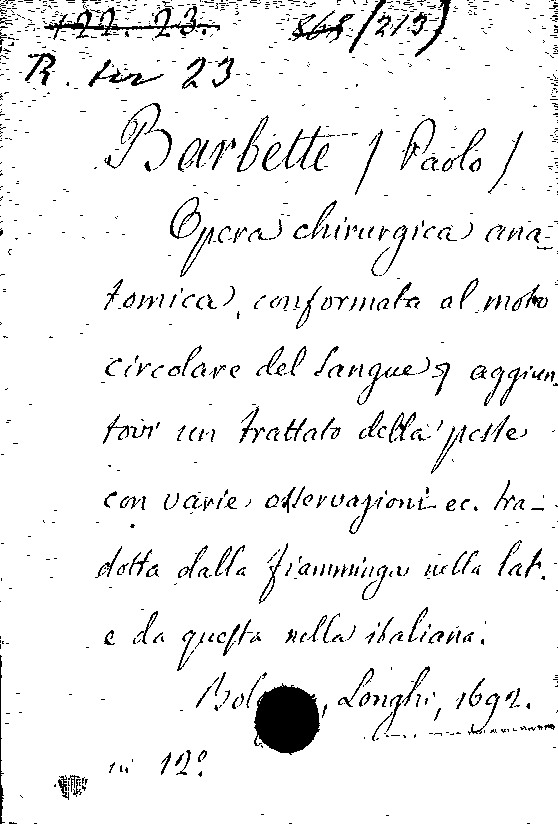 122. 23. 868/213)
R. ter 23
Barbette (Paolo)
Opera chirurgica ana-
tomica, conformata al moto
circolare del sangue, aggiun
tovi un trattato della peste
con varie osservazioni ec. tra-
dotta dalla fiamminga nella lat.
e da questa nella italiana.
Bol , Longhi, 1692.
in 12º